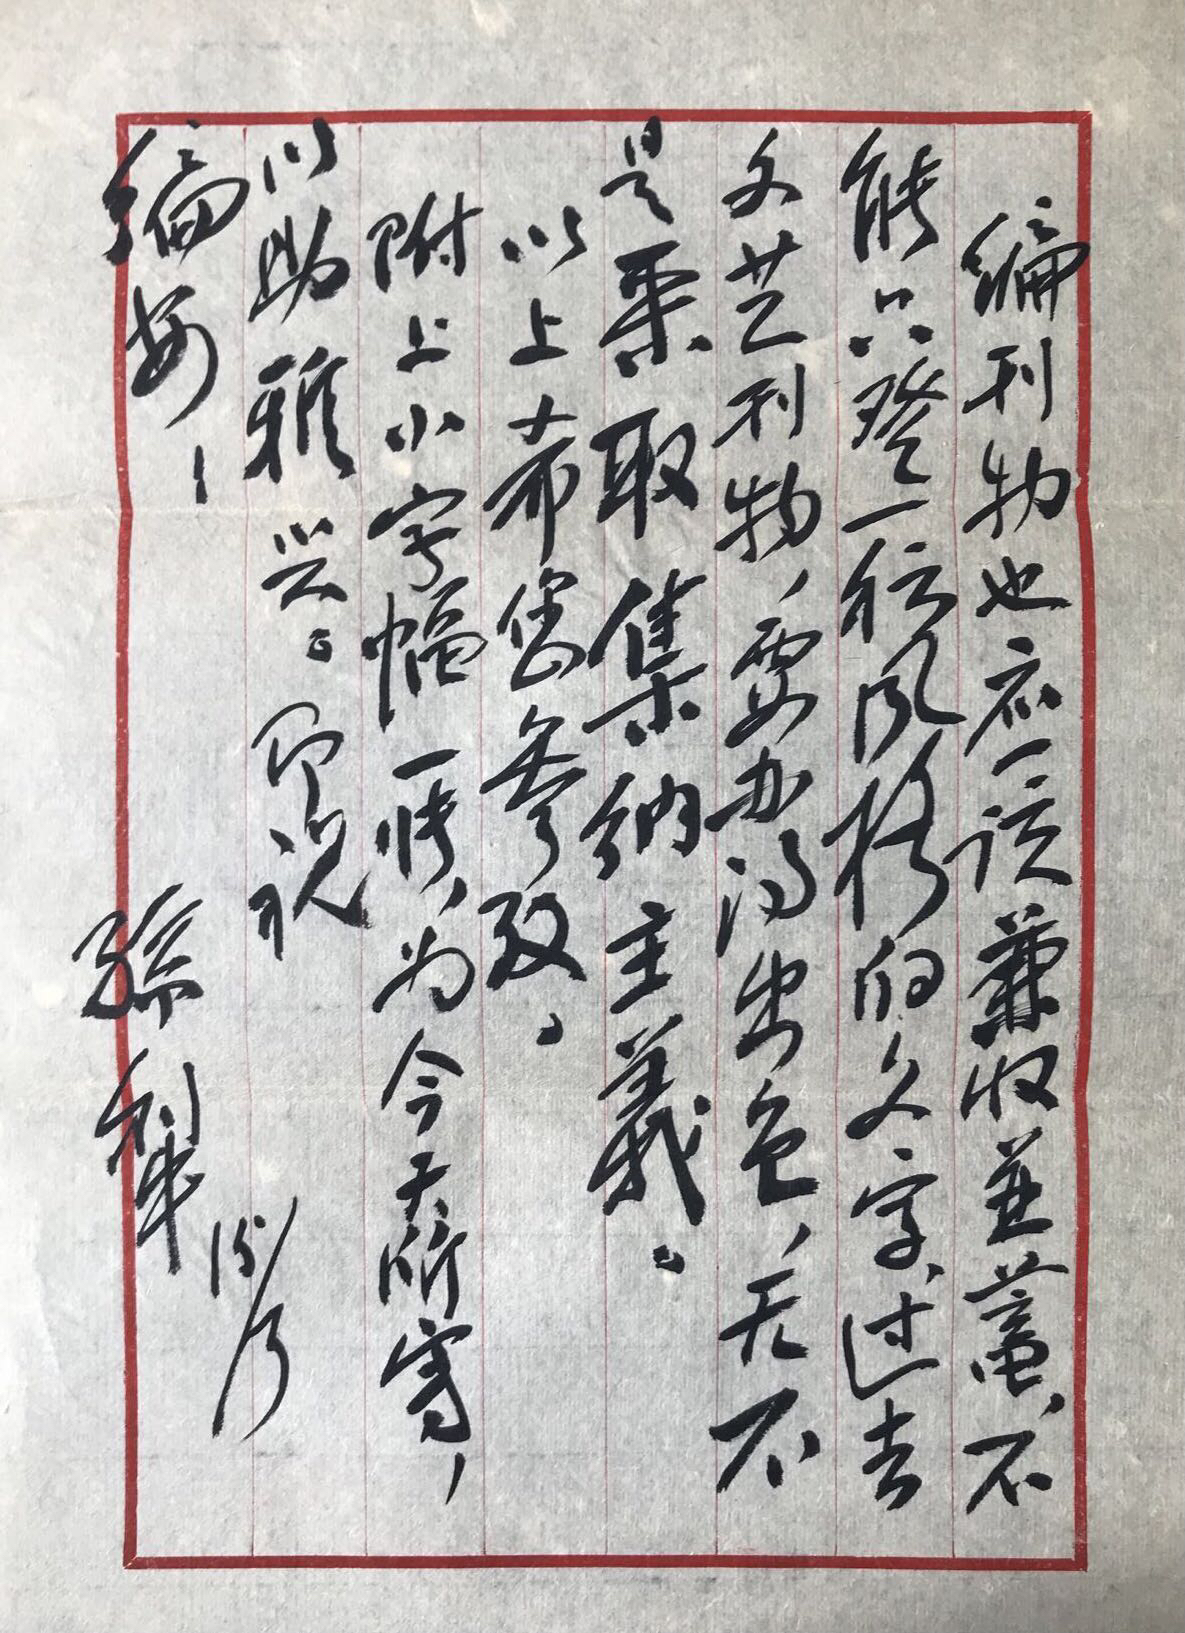 编刊物也应该兼收並蓄、不
能只登一種风格的文字、过去
文艺刊物，要办得出色，无不
是采取集纳主義。
以上希您参致。
附上小字幅一张，为今天所写，
以助雅兴。即祝
编安！
孫犁
15/